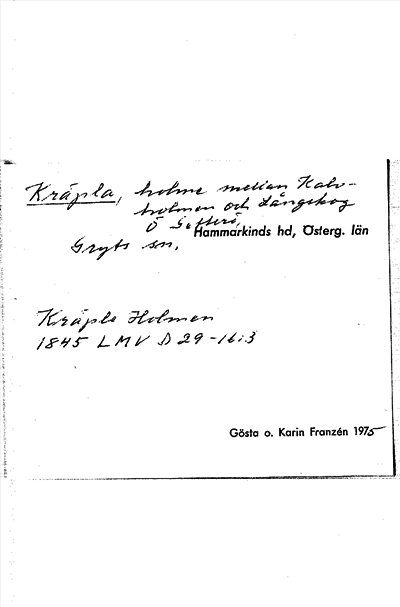 Kräpla, holme mellan Kalv-
holmen och Långskog
Ö
Hammarkinds hd, Österg. län
Gryts sn,
Kräple Holmen
1845 LMV D 29-16:3
Gösta o. Karin Franzén 1975